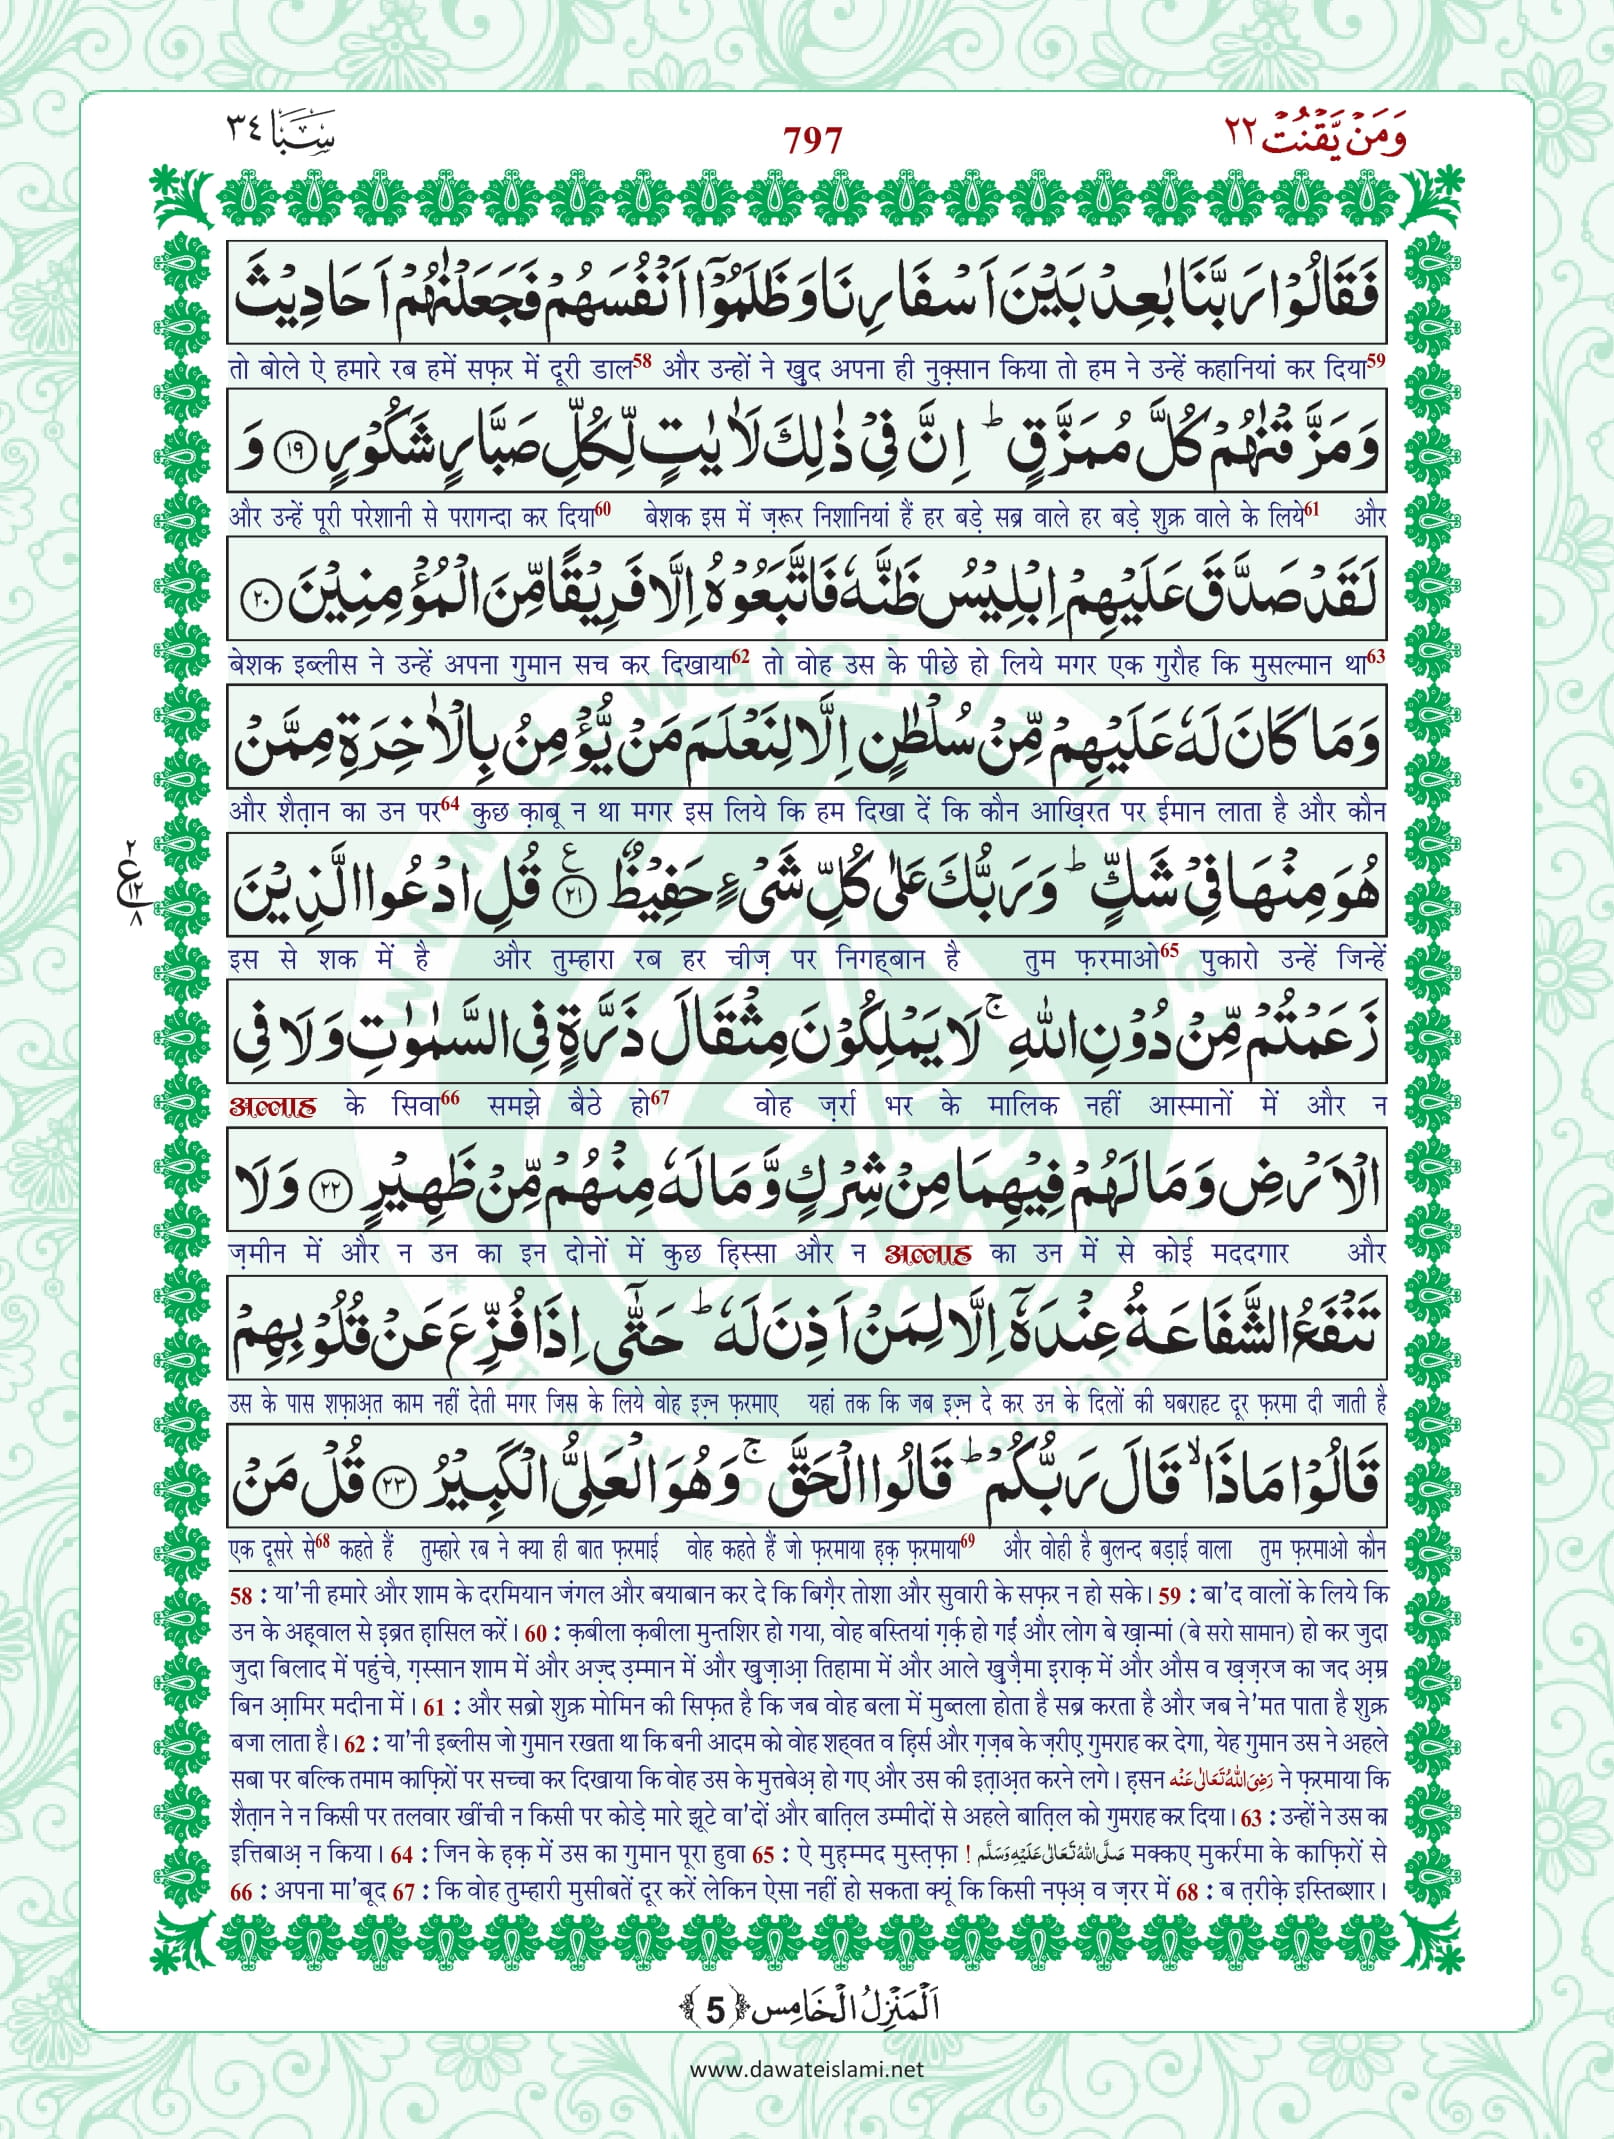 وَمَنۡ يَّقۡنُتۡ ٢٢
797
سَبَا ٣٤
فَقَالُوۡا رَبَّنَا بٰعِدۡ بَيۡنَ اَسۡفَارِنَا وَظَلَمُوۡۤا اَنۡفُسَهُمۡ فَجَعَلۡنٰهُمۡ اَحَادِيۡثَ
तो बोले ऐ हमारे रब हमें सफ़र में दूरी डाल58 और उन्हों ने ख़ुद अपना ही नुक़्सान किया तो हम ने उन्हें कहानियां कर दिया59
وَمَزَّقۡنٰهُمۡ كُلَّ مُمَزَّقٍ ؕ اِنَّ فِىۡ ذٰلِكَ لَاٰيٰتٍ لِّكُلِّ صَبَّارٍ شَكُوۡرٍ ﴿١٩﴾ وَ
और उन्हें पूरी परेशानी से परागन्दा कर दिया60 बेशक इस में ज़रूर निशानियां हैं हर बड़े सब्र वाले हर बड़े शुक्र वाले के लिये61 और
لَقَدۡ صَدَّقَ عَلَيۡهِمۡ اِبۡلِيۡسُ ظَنَّهٗ فَاتَّبَعُوۡهُ اِلَّا فَرِيۡقًا مِّنَ الۡمُؤۡمِنِيۡنَ ﴿٢٠﴾
बेशक इब्लीस ने उन्हें अपना गुमान सच कर दिखाया62 तो वोह उस के पीछे हो लिये मगर एक गुरौह कि मुसल्मान था63
وَمَا كَانَ لَهٗ عَلَيۡهِمۡ مِّنۡ سُلۡطٰنٍ اِلَّا لِنَعۡلَمَ مَنۡ يُّؤۡمِنُ بِالۡاٰخِرَةِ مِمَّنۡ
और शैत़ान का उन पर64 कुछ क़ाबू न था मगर इस लिये कि हम दिखा दें कि कौन आख़िरत पर ईमान लाता है और कौन
هُوَ مِنۡهَا فِىۡ شَكٍّ ؕ وَرَبُّكَ عَلٰى كُلِّ شَىۡءٍ حَفِيۡظٌ ﴿٢١﴾ ع قُلِ ادۡعُوا الَّذِيۡنَ
٢ ع ١٢ ٨
इस से शक में है और तुम्हारा रब हर चीज़ पर निगह्बान है तुम फ़रमाओ65 पुकारो उन्हें जिन्हें
زَعَمۡتُمۡ مِّنۡ دُوۡنِ اللّٰهِ ۚ لَا يَمۡلِكُوۡنَ مِثۡقَالَ ذَرَّةٍ فِى السَّمٰوٰتِ وَلَا فِى
अल्लाह के सिवा66 समझे बैठे हो67 वोह ज़र्रा भर के मालिक नहीं आस्मानों में और न
الۡاَرۡضِ وَمَا لَهُمۡ فِيۡهِمَا مِنۡ شِرۡكٍ وَّمَا لَهٗ مِنۡهُمۡ مِّنۡ ظَهِيۡرٍ ﴿٢٢﴾ وَلَا
ज़मीन में और न उन का इन दोनों में कुछ हिस्सा और न अल्लाह का उन में से कोई मददगार और
تَنۡفَعُ الشَّفَاعَةُ عِنۡدَهٗۤ اِلَّا لِمَنۡ اَذِنَ لَهٗ ؕ حَتّٰٓى اِذَا فُزِّعَ عَنۡ قُلُوۡبِهِمۡ
उस के पास शफ़ाअ़त काम नहीं देती मगर जिस के लिये वोह इज़्न फ़रमाए यहां तक कि जब इज़्न दे कर उन के दिलों की घबराहट दूर फ़रमा दी जाती है
قَالُوۡا مَاذَا ۙ قَالَ رَبُّكُمۡ ؕ قَالُوا الۡحَقَّ ۚ وَهُوَ الۡعَلِىُّ الۡكَبِيۡرُ ﴿٢٣﴾ قُلۡ مَنۡ
एक दूसरे से68 कहते हैं तुम्हारे रब ने क्या ही बात फ़रमाई वोह कहते हैं जो फ़रमाया ह़क़ फ़रमाया69 और वोही है बुलन्द बड़ाई वाला तुम फ़रमाओ कौन
58 : या'नी हमारे और शाम के दरमियान जंगल और बयाबान कर दे कि बिग़ैर तोशा और सुवारी के सफ़र न हो सके। 59 : बा'द वालों के लिये कि
उन के अह़्वाल से इब्रत ह़ासिल करें। 60 : क़बीला क़बीला मुन्तशिर हो गया, वोह बस्तियां ग़र्क़ हो गईं और लोग बे ख़ान्मां (बे सरो सामान) हो कर जुदा
जुदा बिलाद में पहुंचे, ग़स्सान शाम में और अज़्द उ़म्मान में और ख़ुज़ाआ़ तिहामा में और आले ख़ुज़ैमा इराक़ में और औस व ख़ज़रज का जद अ़म्र
बिन आ़मिर मदीना में। 61 : और सब्रो शुक्र मोमिन की सिफ़त है कि जब वोह बला में मुब्तला होता है सब्र करता है और जब ने'मत पाता है शुक्र
बजा लाता है। 62 : या'नी इब्लीस जो गुमान रखता था कि बनी आदम को वोह शह्वत व ह़िर्स और ग़ज़ब के ज़रीए गुमराह कर देगा, येह गुमान उस ने अहले
सबा पर बल्कि तमाम काफ़िरों पर सच्चा कर दिखाया कि वोह उस के मुत्तबेअ़ हो गए और उस की इत़ाअ़त करने लगे। ह़सन رَضِىَ اللّٰهُ تَعَالٰى عَنۡه ने फ़रमाया कि
शैत़ान ने न किसी पर तलवार खींची न किसी पर कोड़े मारे झूटे वा'दों और बात़िल उम्मीदों से अहले बात़िल को गुमराह कर दिया। 63 : उन्हों ने उस का
इत्तिबाअ़ न किया। 64 : जिन के ह़क़ में उस का गुमान पूरा हुवा 65 : ऐ मुह़म्मद मुस्त़फ़ा ! صَلَّى اللّٰهُ تَعَالٰى عَلَيۡهِ وَسَلَّم मक्कए मुकर्रमा के काफ़िरों से
66 : अपना मा'बूद 67 : कि वोह तुम्हारी मुसीबतें दूर करें लेकिन ऐसा नहीं हो सकता क्यूं कि किसी नफ़्अ़ व ज़रर में 68 : ब त़रीक़े इस्तिब्शार।
اَلۡمَنۡزِلُ الۡخَامِس ﴿5﴾
www.dawateislami.net